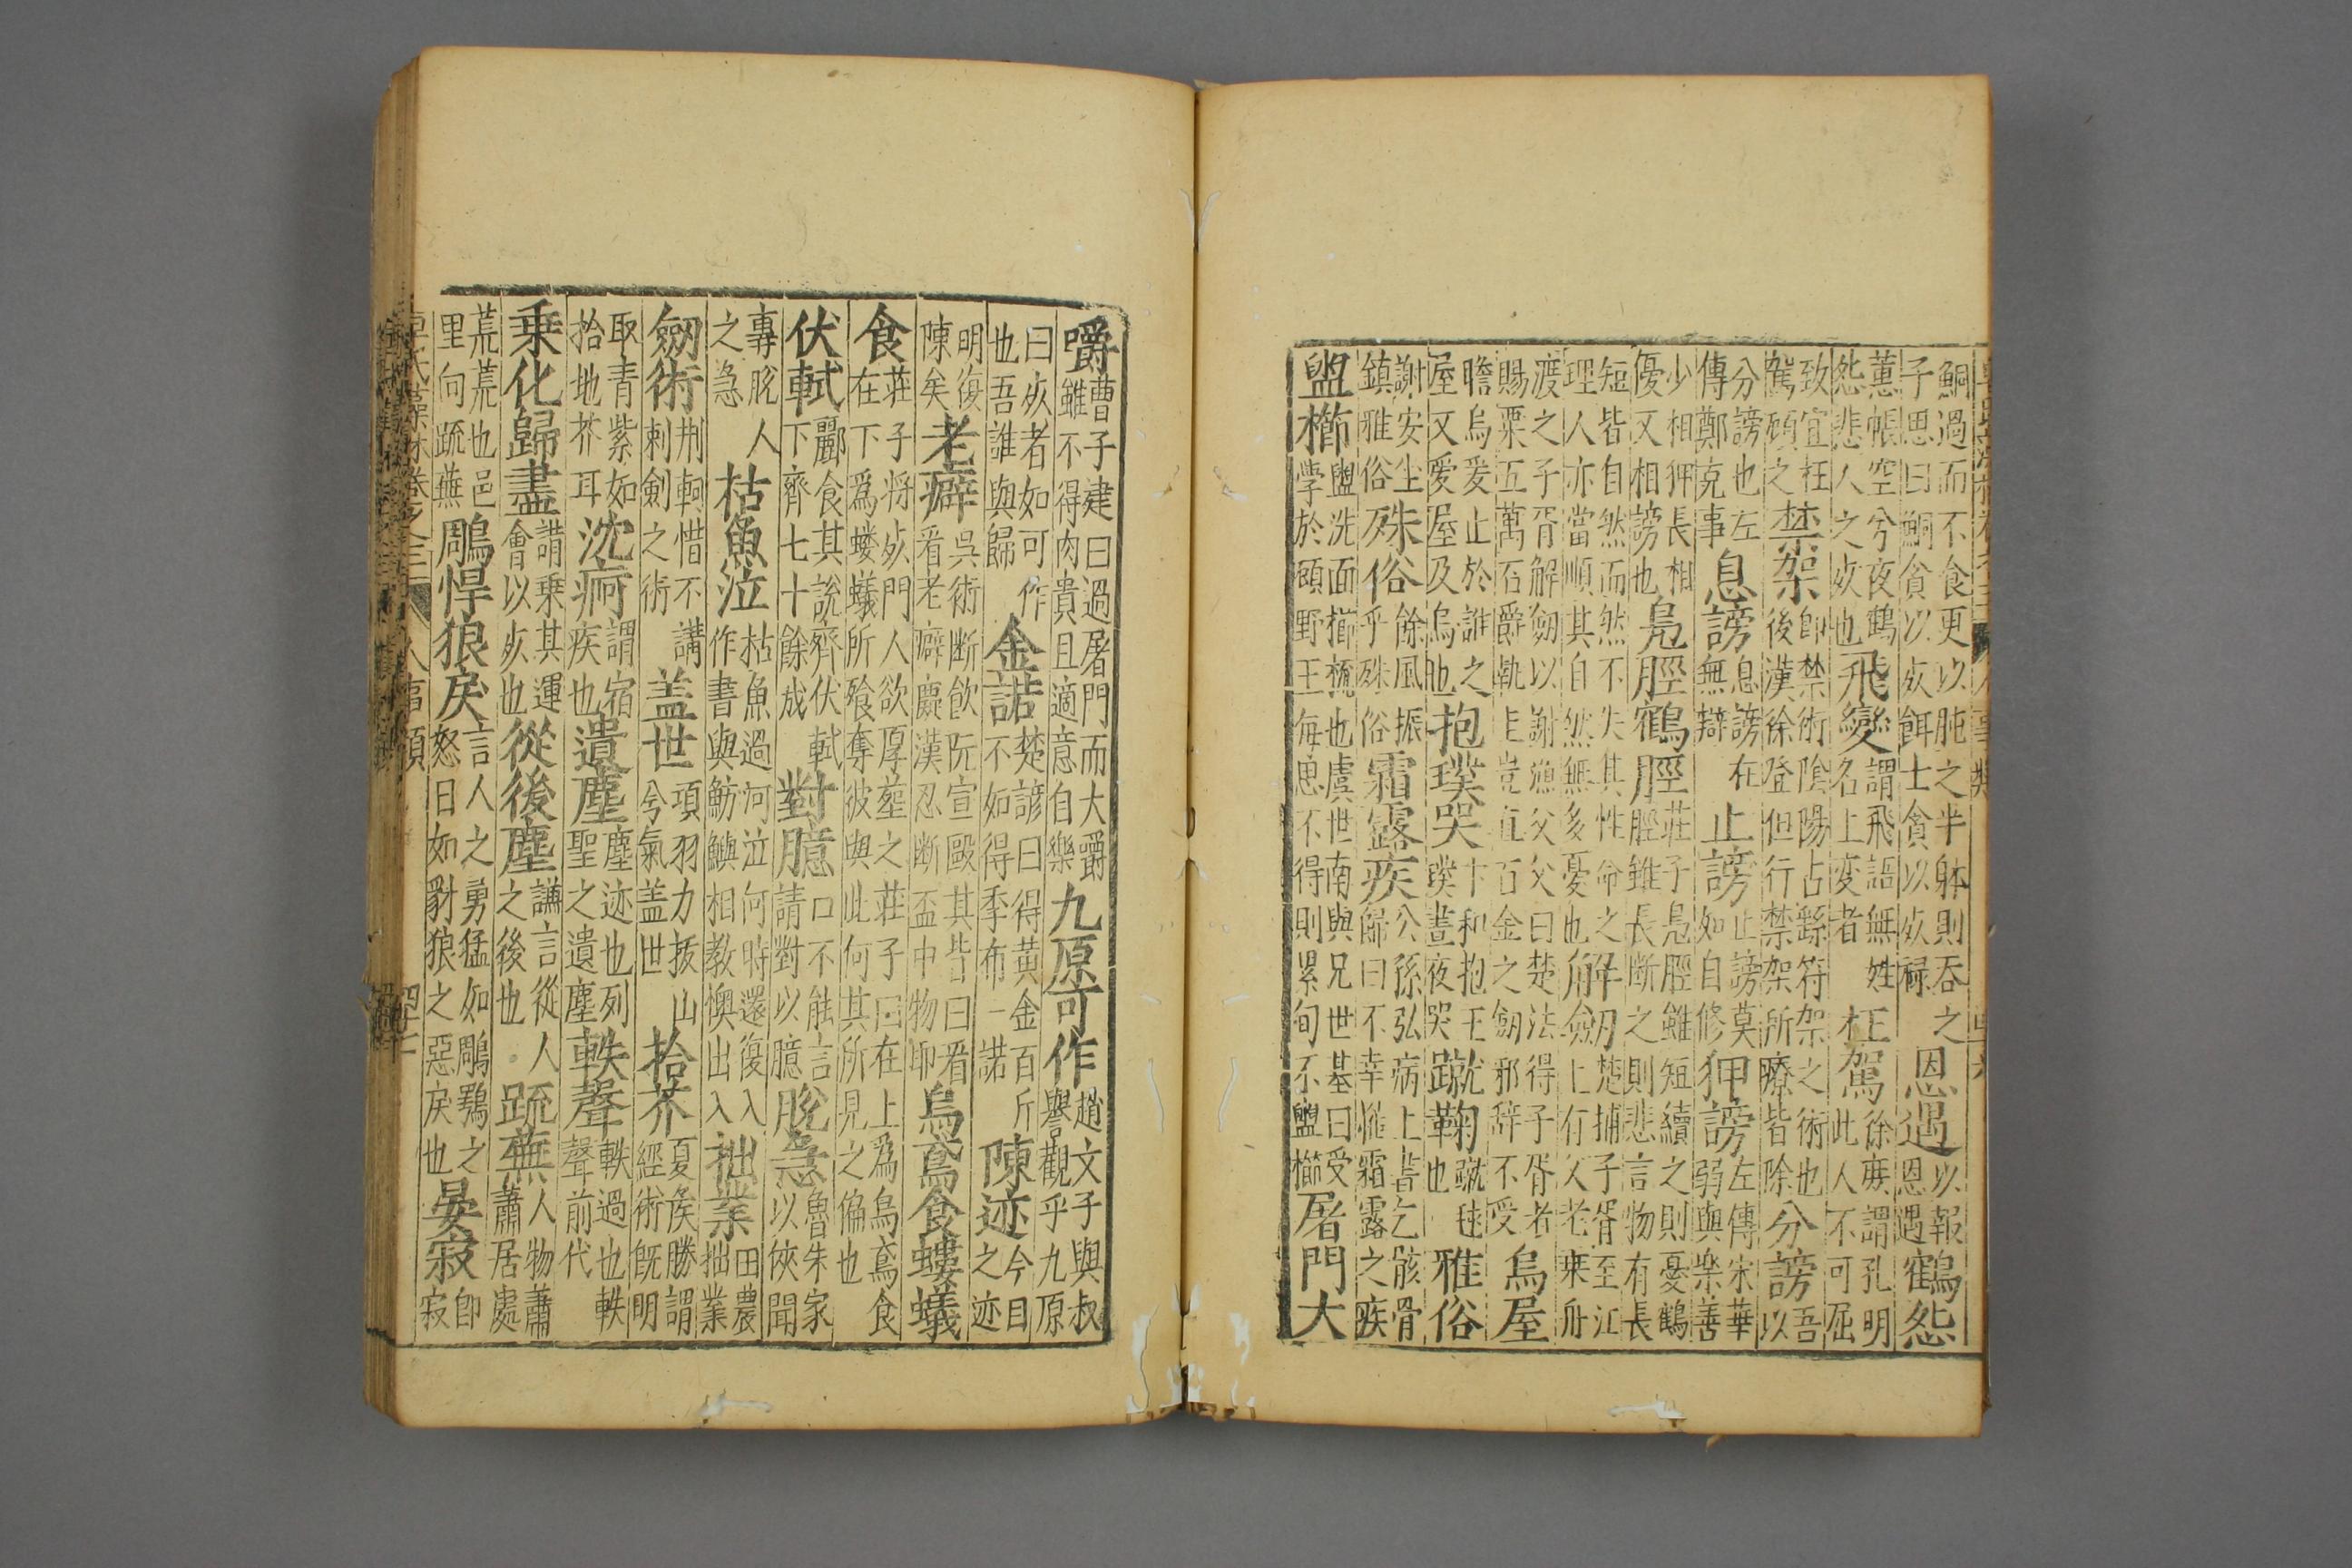 鮦過而不食更以肫之半躰則吞之子思曰鮦貪以死餌士貪以死祿恩遇以報恩遇鶴怨
蕙帳空兮夜鶴怨悲人之死也飛變謂飛語無姓名上变者枉駕徐庶謂孔明此人不可屈
致宜枉駕頋之禁架即禁術陰陽占繇符架之術也後漢徐登但行禁架所療皆除分謗吾以
分謗也左傳鄭克事息謗息謗在無辯止謗止謗莫如自修狎謗左傳宋華弱與樂善
少相狎長相優又相謗也凫脛鶴脛莊子凫脛雖短續之則憂鶴脛雖長断之則悲言物有長
短皆自然而然不失其性命之理人亦當順其自然無多憂也解劒楚捕子胥至江上有父老乘舟
渡之子胥解劒以謝漁父父曰楚法得子胥者賜粟五萬石爵執圭豈直百金之劒邪辞不受烏屋
瞻烏爰止於誰之屋又愛屋及烏也抱璞哭卞和抱玉璞晝夜哭蹴鞠蹴毬也雅俗
謝安尘鎮雅俗殊俗餘風振乎殊俗霜露疾公孫弘病上書乞骸骨歸曰不幸罹霜露之疾
盥櫛盥洗面櫛梳也虞世南與兄世基曰受學於頋野王每思不得則累旬不盥櫛屠門大
嚼曹子建曰過屠門而大嚼雖不得肉貴且適意自樂九原可作趙文子與叔譽觀乎九原
曰死者如可作也吾誰與歸金諾楚諺曰得黃金百斤不如得季布一諾陳迹今日之迹
明復陳矣老癖吳術断飲阮宣毆其背曰看看老癖癡漢忍断盃中物耶烏鳶食螻蟻
食莊子将死門人欲厚塟之莊子曰在上爲烏鳶食在下爲螻蟻所飡奪彼與此何其所見之偏也
伏軾酈食其說齊伏軾下齊七十餘城對臆口不能言請對以臆脫急魯朱家以俠聞
專脫人之急枯魚泣枯魚過河泣何時還復入作書與魴鱮相教懊出入拙業田農拙業
劒術荆軻惜不講刺劍之術盖世項羽力拔山兮氣盖世拾芥夏侯勝謂經術旣明
取青紫如拾地芥耳沈痾謂宿疾也遺塵塵迹也列聖之遺塵軼聲軼過也軼聲前代
乘化歸盡謂乘其運會以死也從後塵謙言從人之後也疏蕪人物蕭蕭居處
荒荒也邑里向疏蕪鵰悍狼戾言人之勇猛如鵰鶚之怒日如豺狼之惡戾也晏寂即寂
卓氏藻林卷之三 人事類 四十七